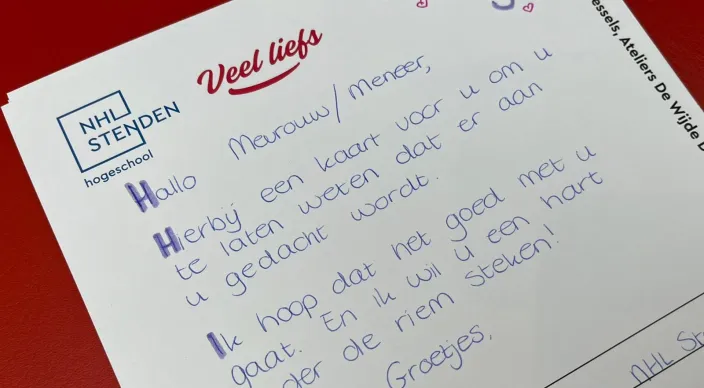 Veel liefs
NHL
STENDEN
hogeschool
essels, Ateliers De Wijde
Hallo Mevrouw/Meneer,
Hierbij een kaart voor u om u
te laten weten dat er aan
u gedacht wordt.
Ik hoop dat het goed met u
gaat. En ik wil u een hart
der de riem steken!
Groetjes,
NHL St